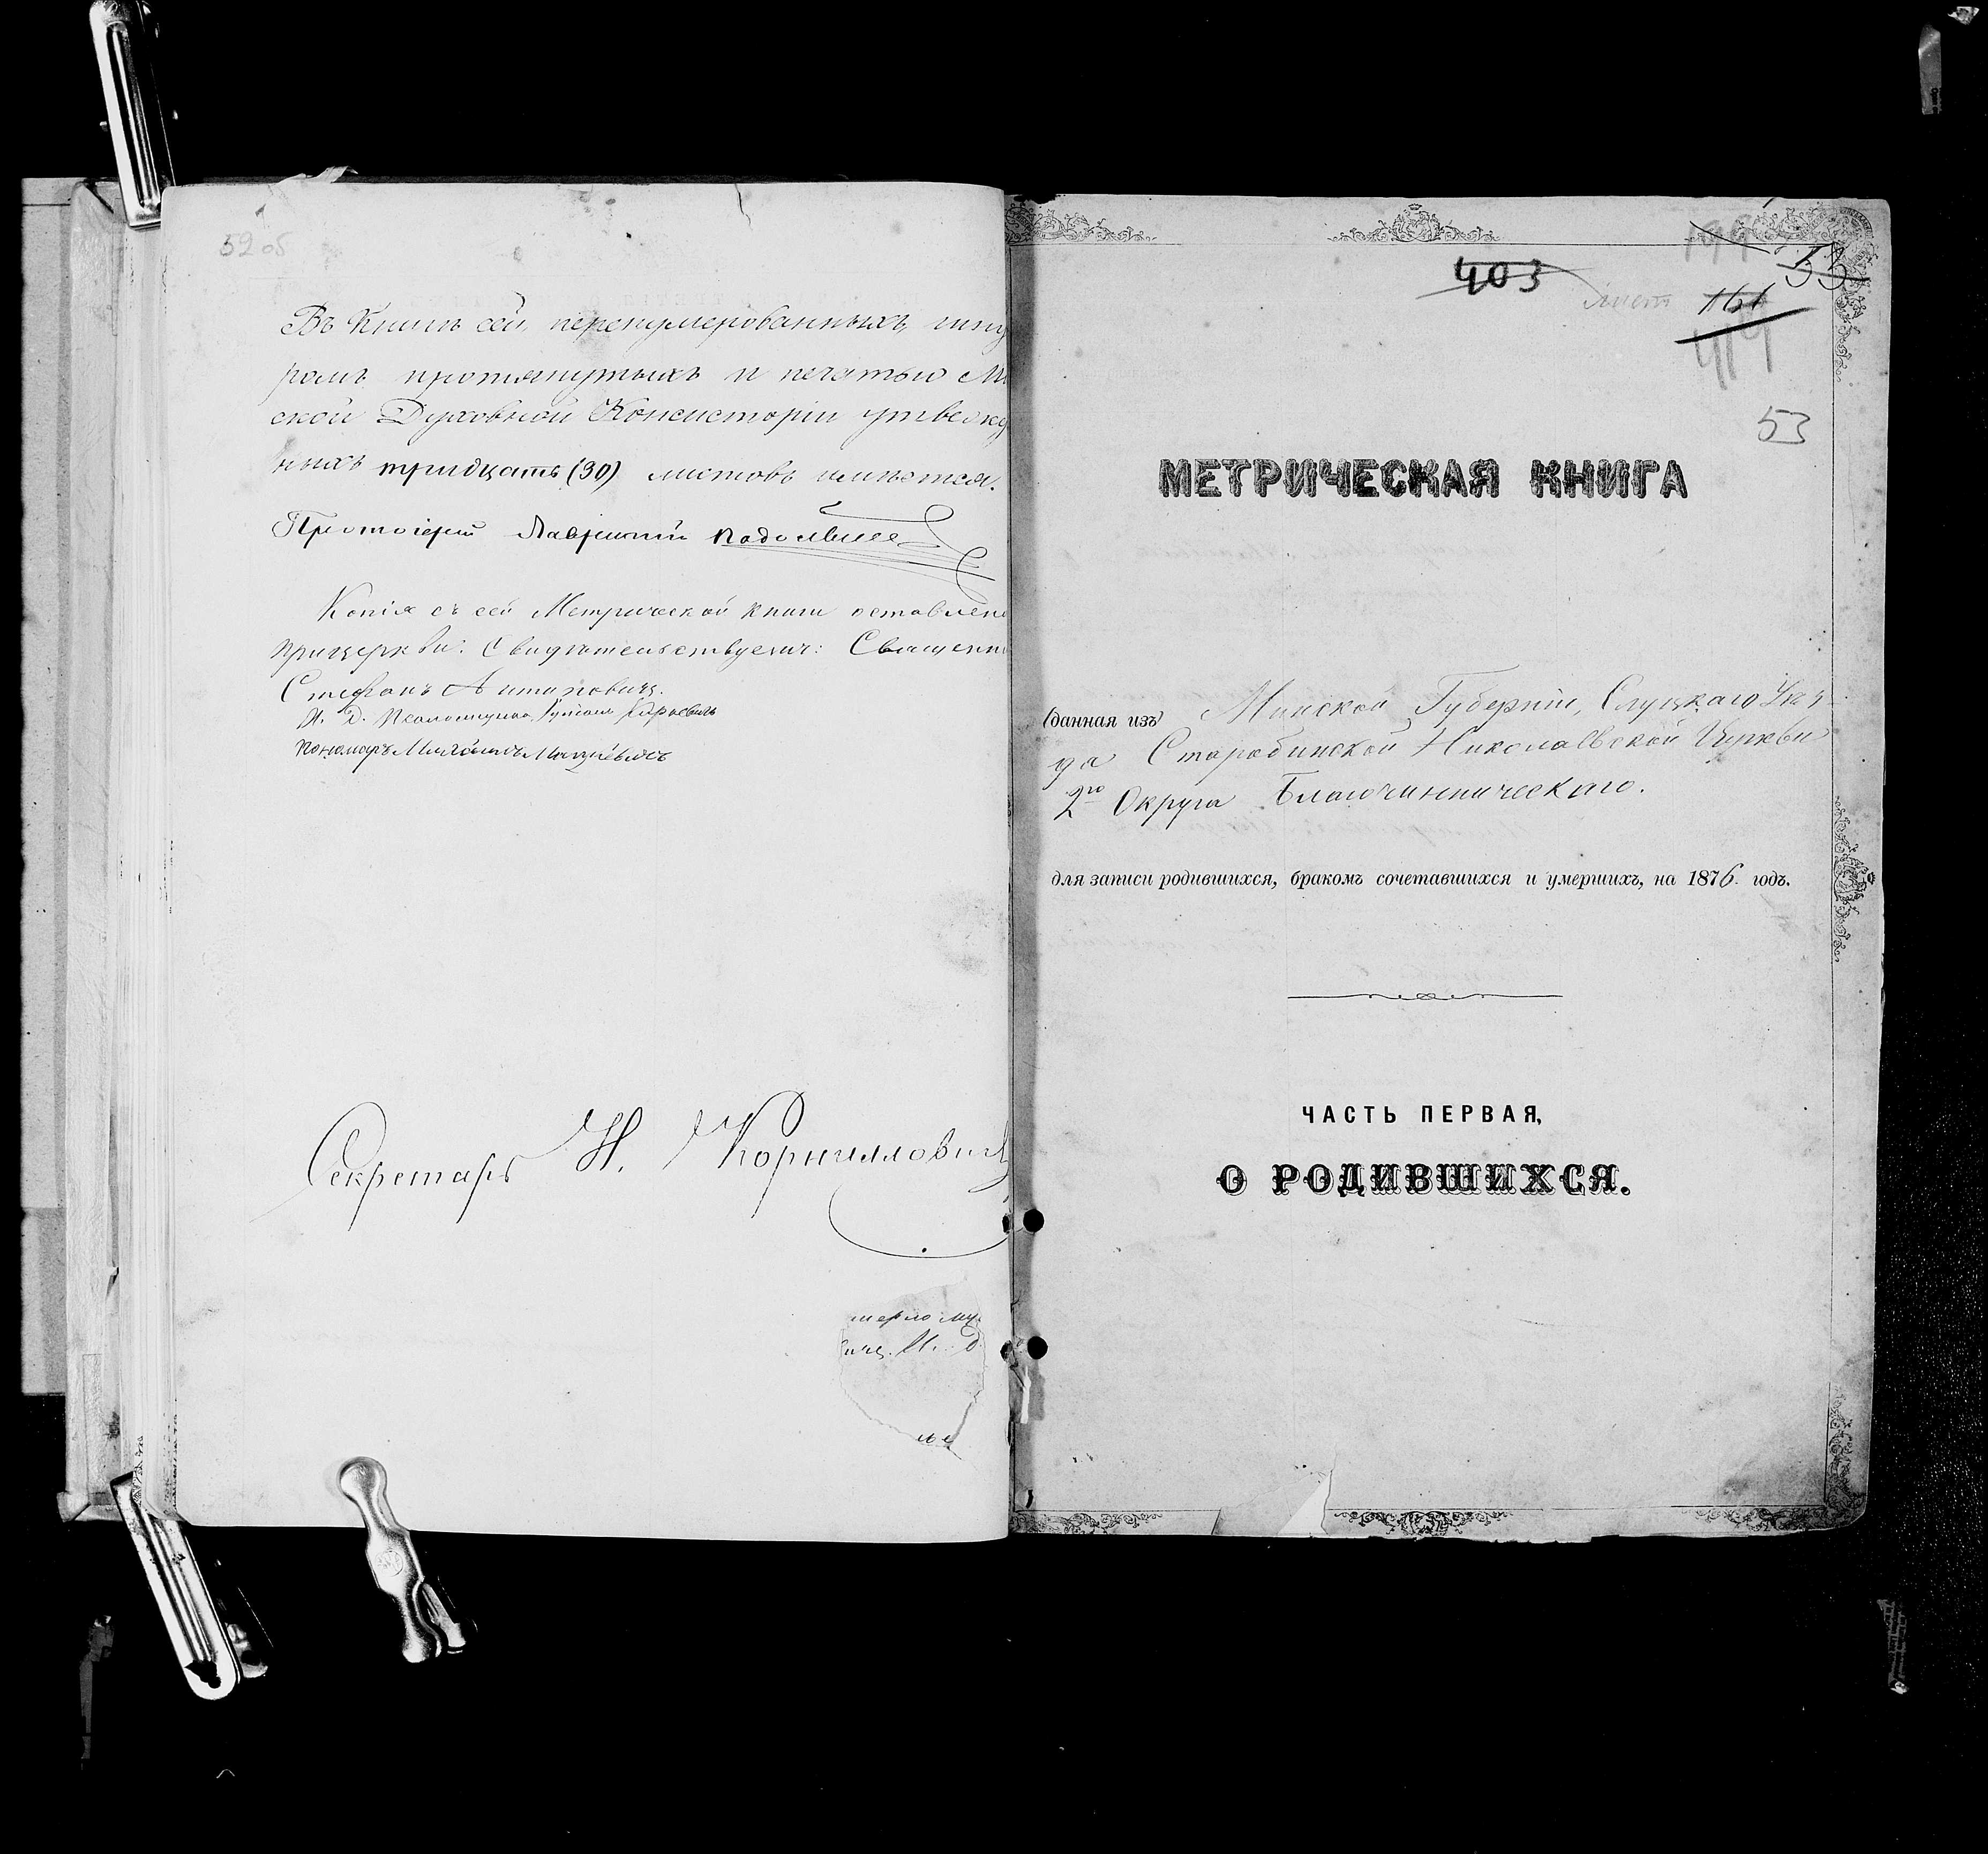 52 об
Въ Книгѣ сей, перенумерованныхъ, шну
ромъ протянутыхъ и печатью Ми
ской Духовной Консисторіи утвержд
ныхъ тридцать (30) листовъ имѣется.
Протоіерей
Копія съ сей Метрической книги оставлена
при церкви. Свидѣтельствуемъ: Священн
Стефанъ
И. Д. Псаломщика
Пономарь
Секретарь Н. Корнилович
мерло му
И. д
403
лист 161
53
419
53
МЕТРИЧЕСКАЯ КНИГА
(данная изъ) Минской Губерніи, Слуцкаго Уѣз
да Старобинской Николаевской Церкви
2го Округа Благочинническаго.
для записи родившихся, бракомъ сочетавшихся и умершихъ, на 1876. годъ.
ЧАСТЬ ПЕРВАЯ,
О РОДИВШИХСЯ.